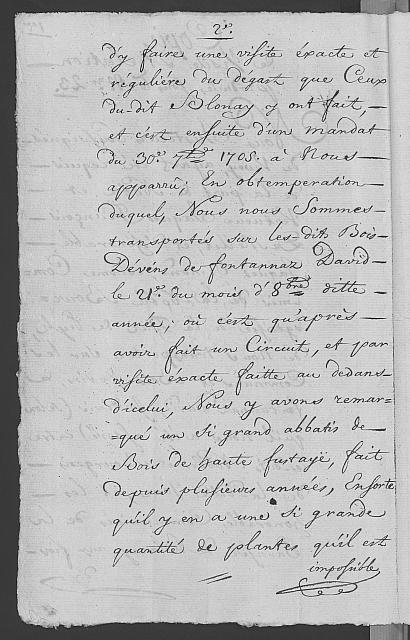 2º.
d'y faire une visite éxacte et
réguliére du dégast que Ceux
du-dit Blonay y ont fait,
et c'est ensuite d'un mandat
du 30º. 7bre 1705. à Nous
apparrû; En obtemperation
duquel, Nous nous Sommes
transportés sur les-dits Bois
Dévéns de fontannaz David
le 21º. du mois d'8bre ditte
année; où c'est qu'après
avoir fait un Circuit, et par
visite éxacte faitte au dedans
d'icelui, Nous y avons remar=
=qué un si grand abbatis de
Bois de haute futayë, fait
depuis plusieurs années, Ensorte
qu'il y en a une si grande
quantité de plantes qu'il est
impossible